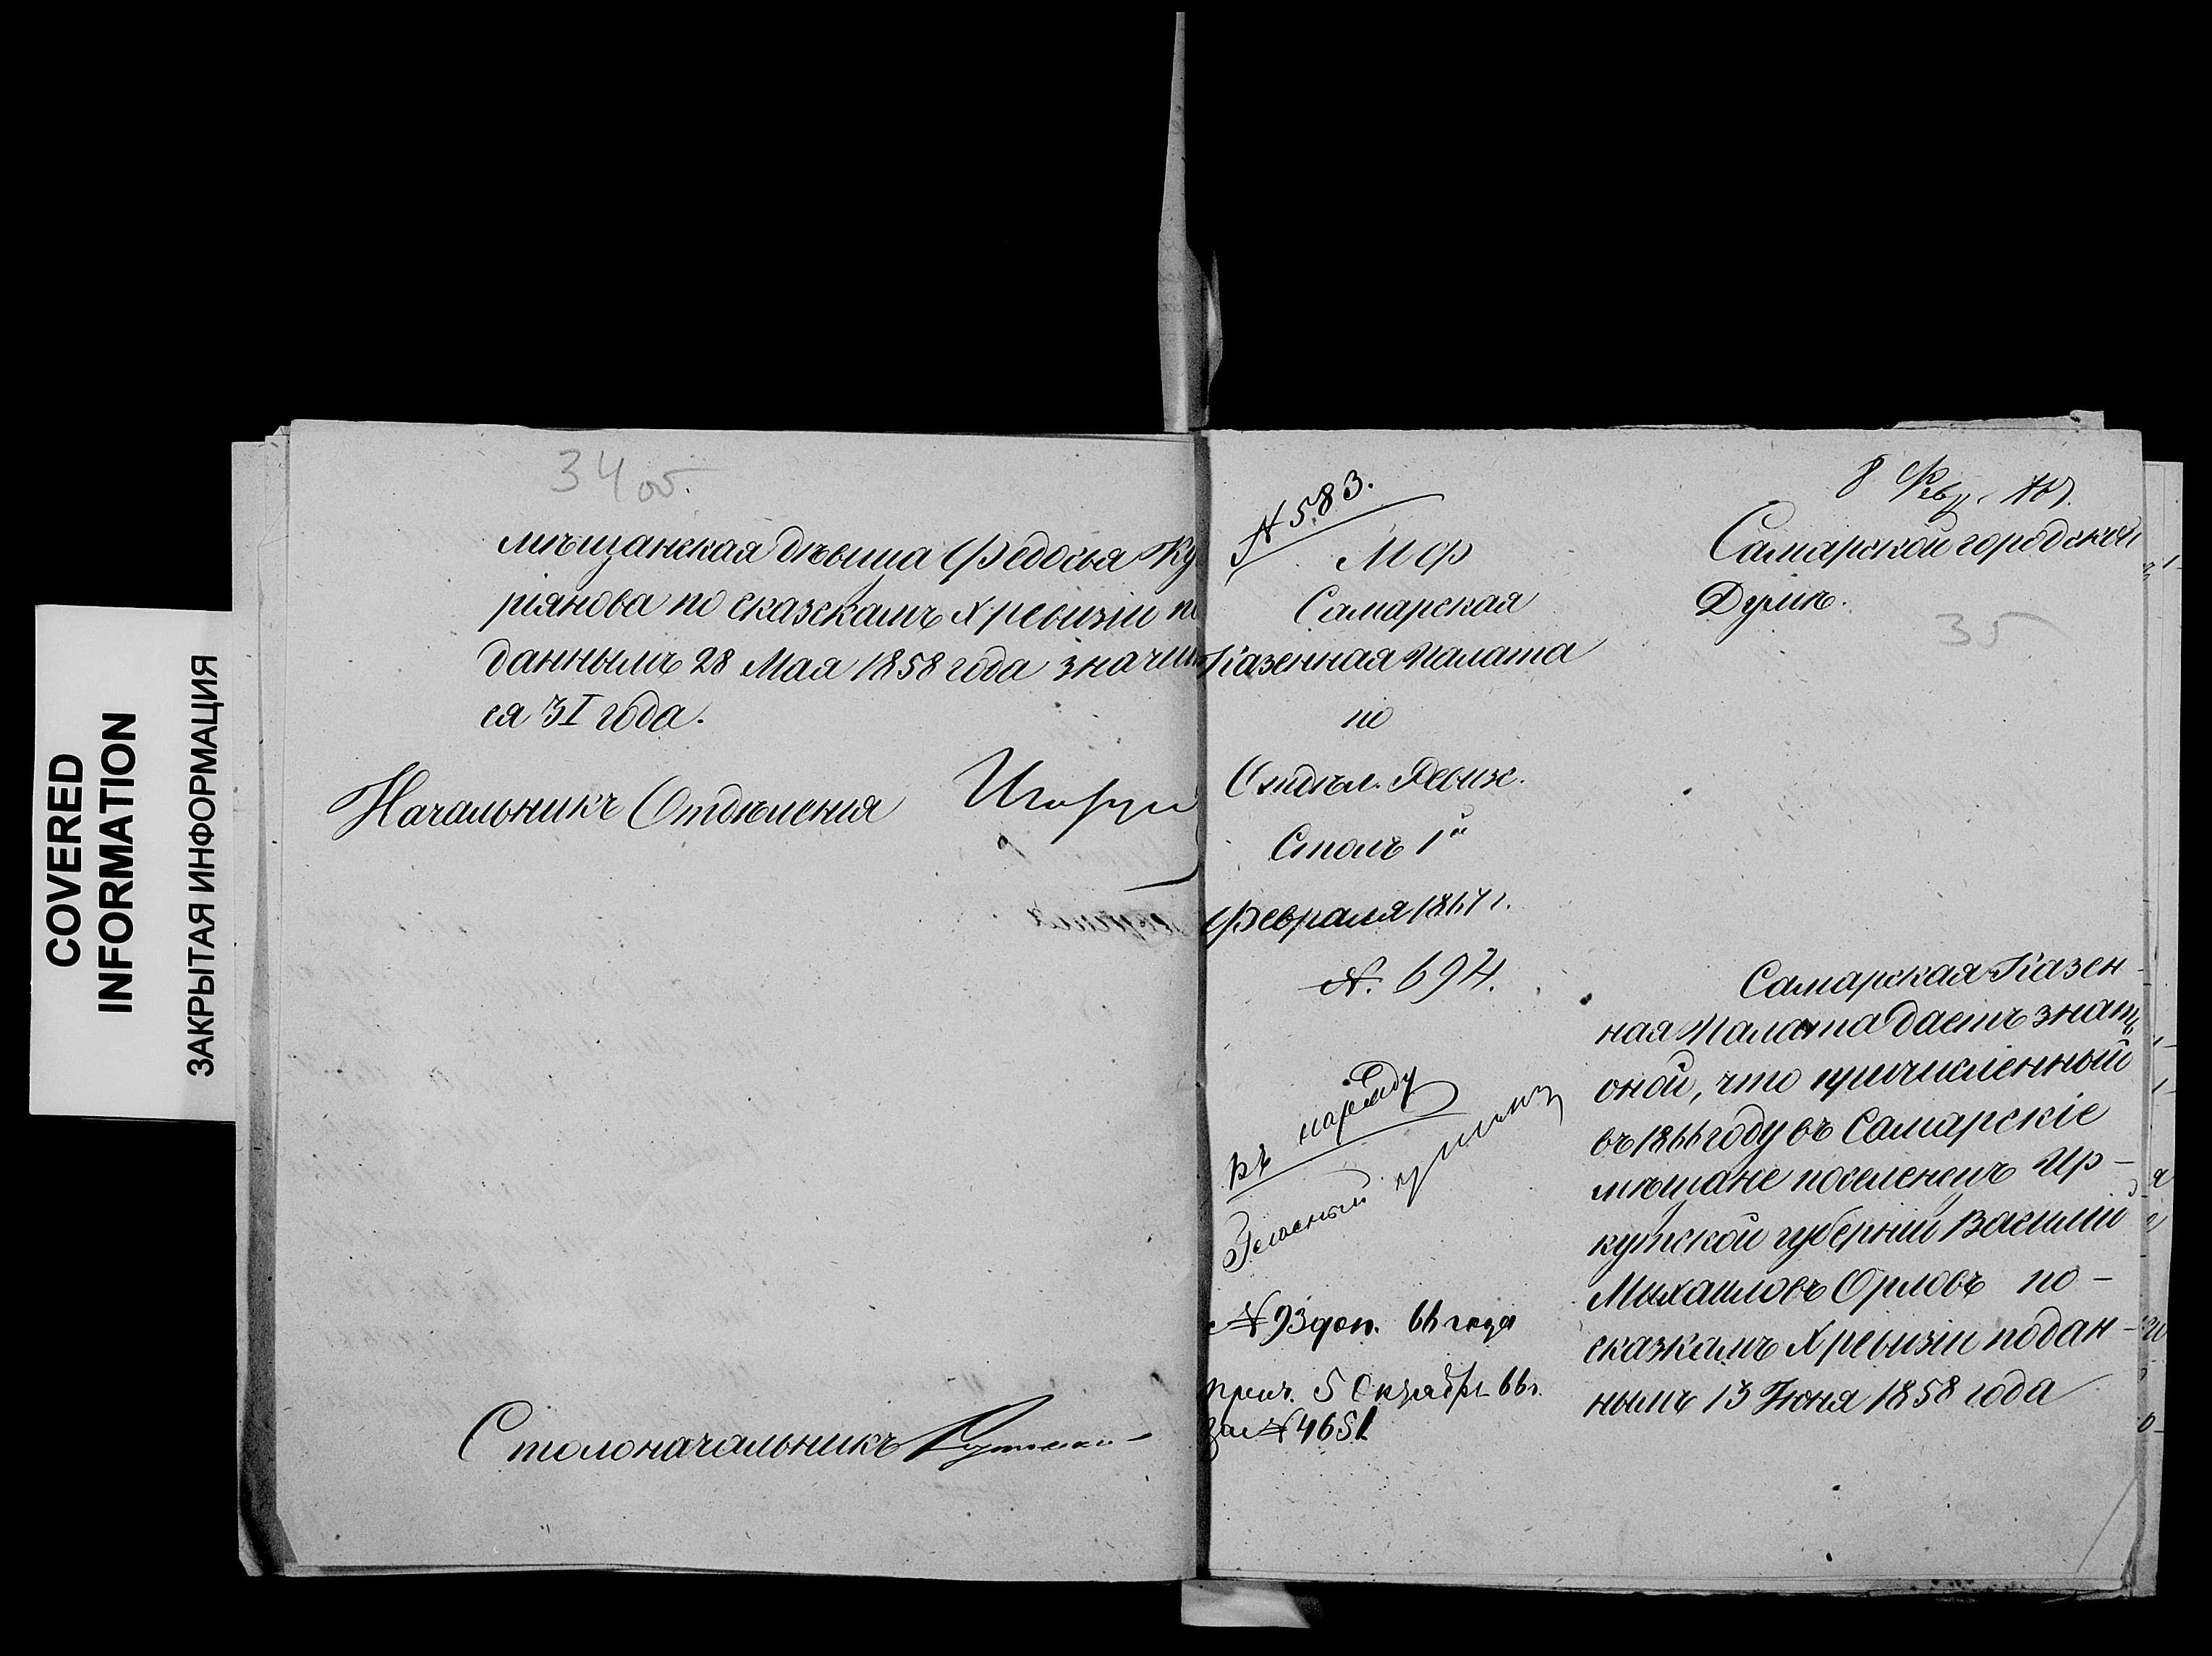 COVERED
INFORMATION
ЗАКРЫТАЯ ИНФОРМАЦИЯ
34 об.
мѣщанская дѣвица Федосья Ку
ріянова по сказскамъ X ревизіи по
даннымъ 28 Мая 1858 года значит
ся 31 года.
Начальникъ Отдѣленія
Столоначальникъ
№ 583.
М Ф
Самарская
Казенная Палата
по
Отдѣл. Ревиз.
Столъ 1й
Февраля 1867 г.
№. 694.
къ наряду
№ 93 доп. 66 года
прич. 5 Октября 66 г.
за № 4651
8 Фев.
Самарской городской
Думѣ.
35
Самарская Казен
ная Палата даетъ знать
оной, что причисленный
въ 1866 году въ Самарскіе
мѣщане поселенецъ Ир-
кутской губерніи Василій
Михаиловъ Орловъ по-
сказкамъ X ревизіи подан-
нымъ 13 Іюня 1858 года